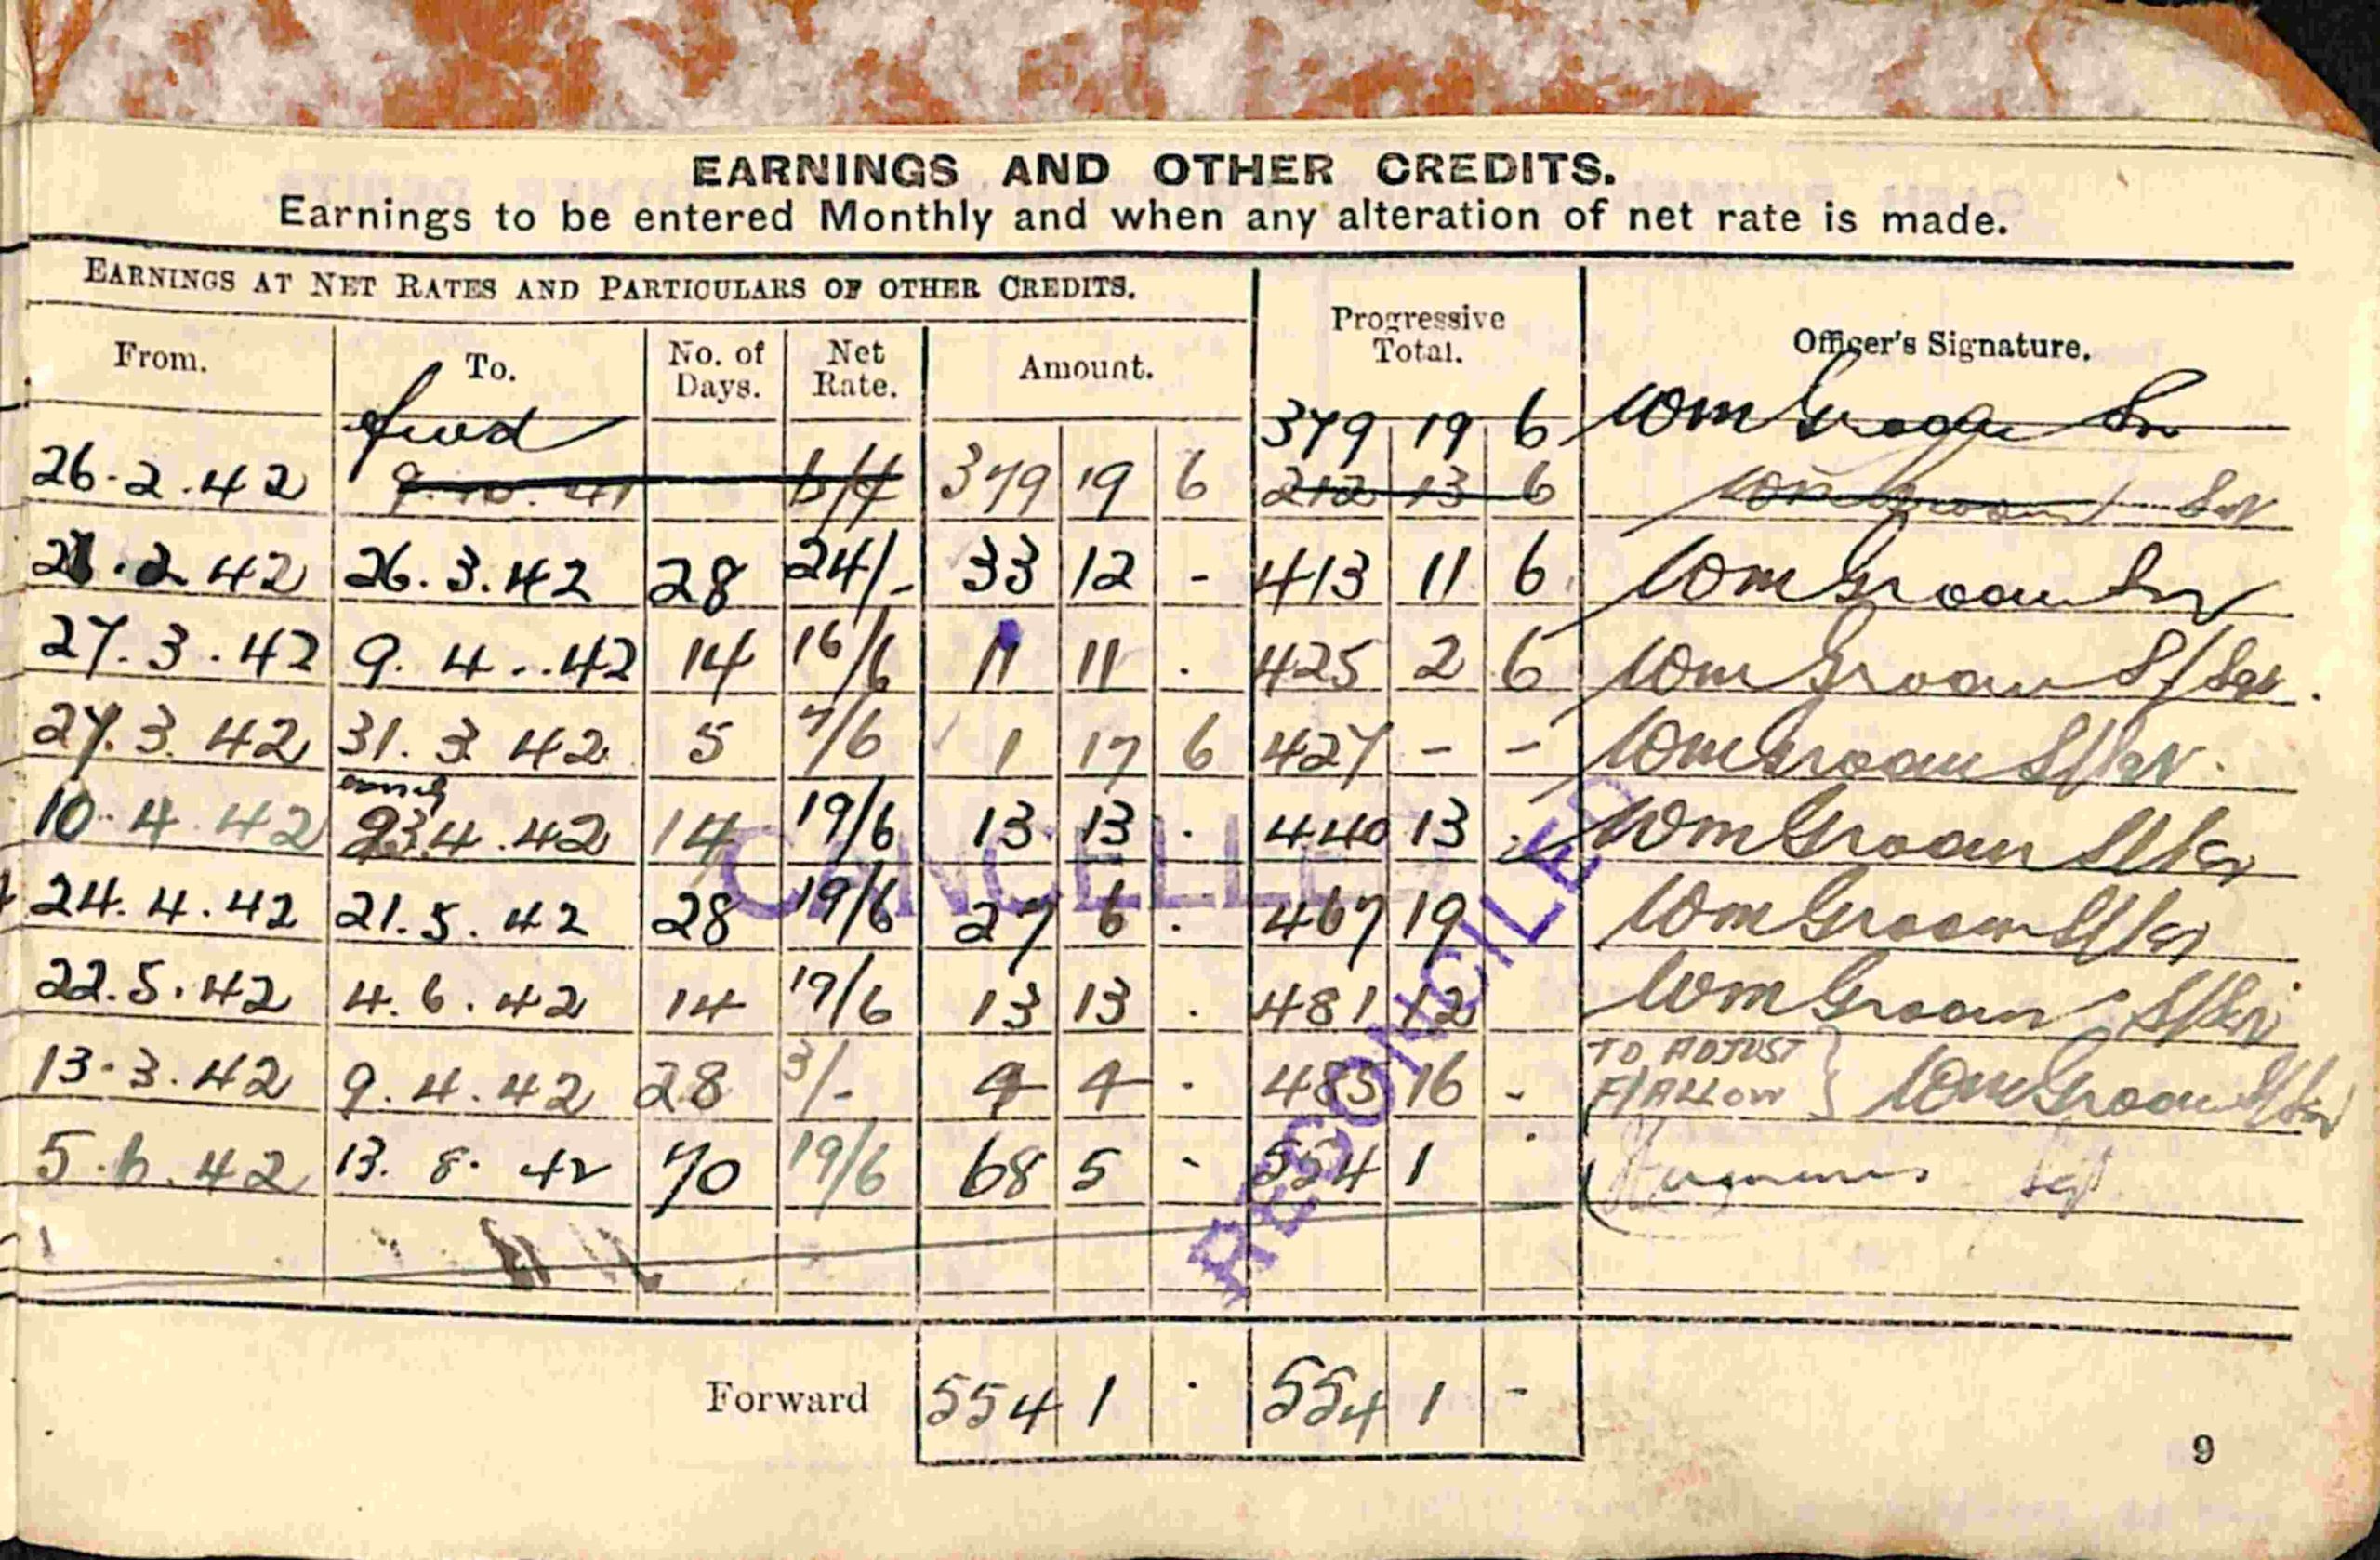 EARNINGS AND OTHER CREDITS.
Earnings to be entered Monthly and when any alteration of net rate is made.
EARNINGS AT NET RATES AND PARTICULARS OF OTHER CREDITS.
Progressive Total.
Officer's Signature.
From. To. No. of Days. Net Rate. Amount.
fwd 379 19 6
26.2.42 b/f 379 19 6 212 13 6
2.42 26.3.42 28 24/- 33 12 - 413 11 6
27.3.42 9.4..42 14 16/6 11 11 . 425 2 6
27.3.42 31.3.42 5 7/6 1 17 6 427 - -
10.4.42 23.4.42 14 19/6 13 13 . 440 13 .
24.4.42 21.5.42 28 19/6 27 6 . 467 19
22.5.42 4.6.42 14 19/6 13 13 . 481 12
13.3.42 9.4.42 28 3/- 4 4 . 485 16 - TO ADJUST F/ALLOW
5.6.42 13.8.42 70 19/6 68 5 - 554 1
CANCELLED
RECONCILED
Forward 554 1 . 554 1 -
9